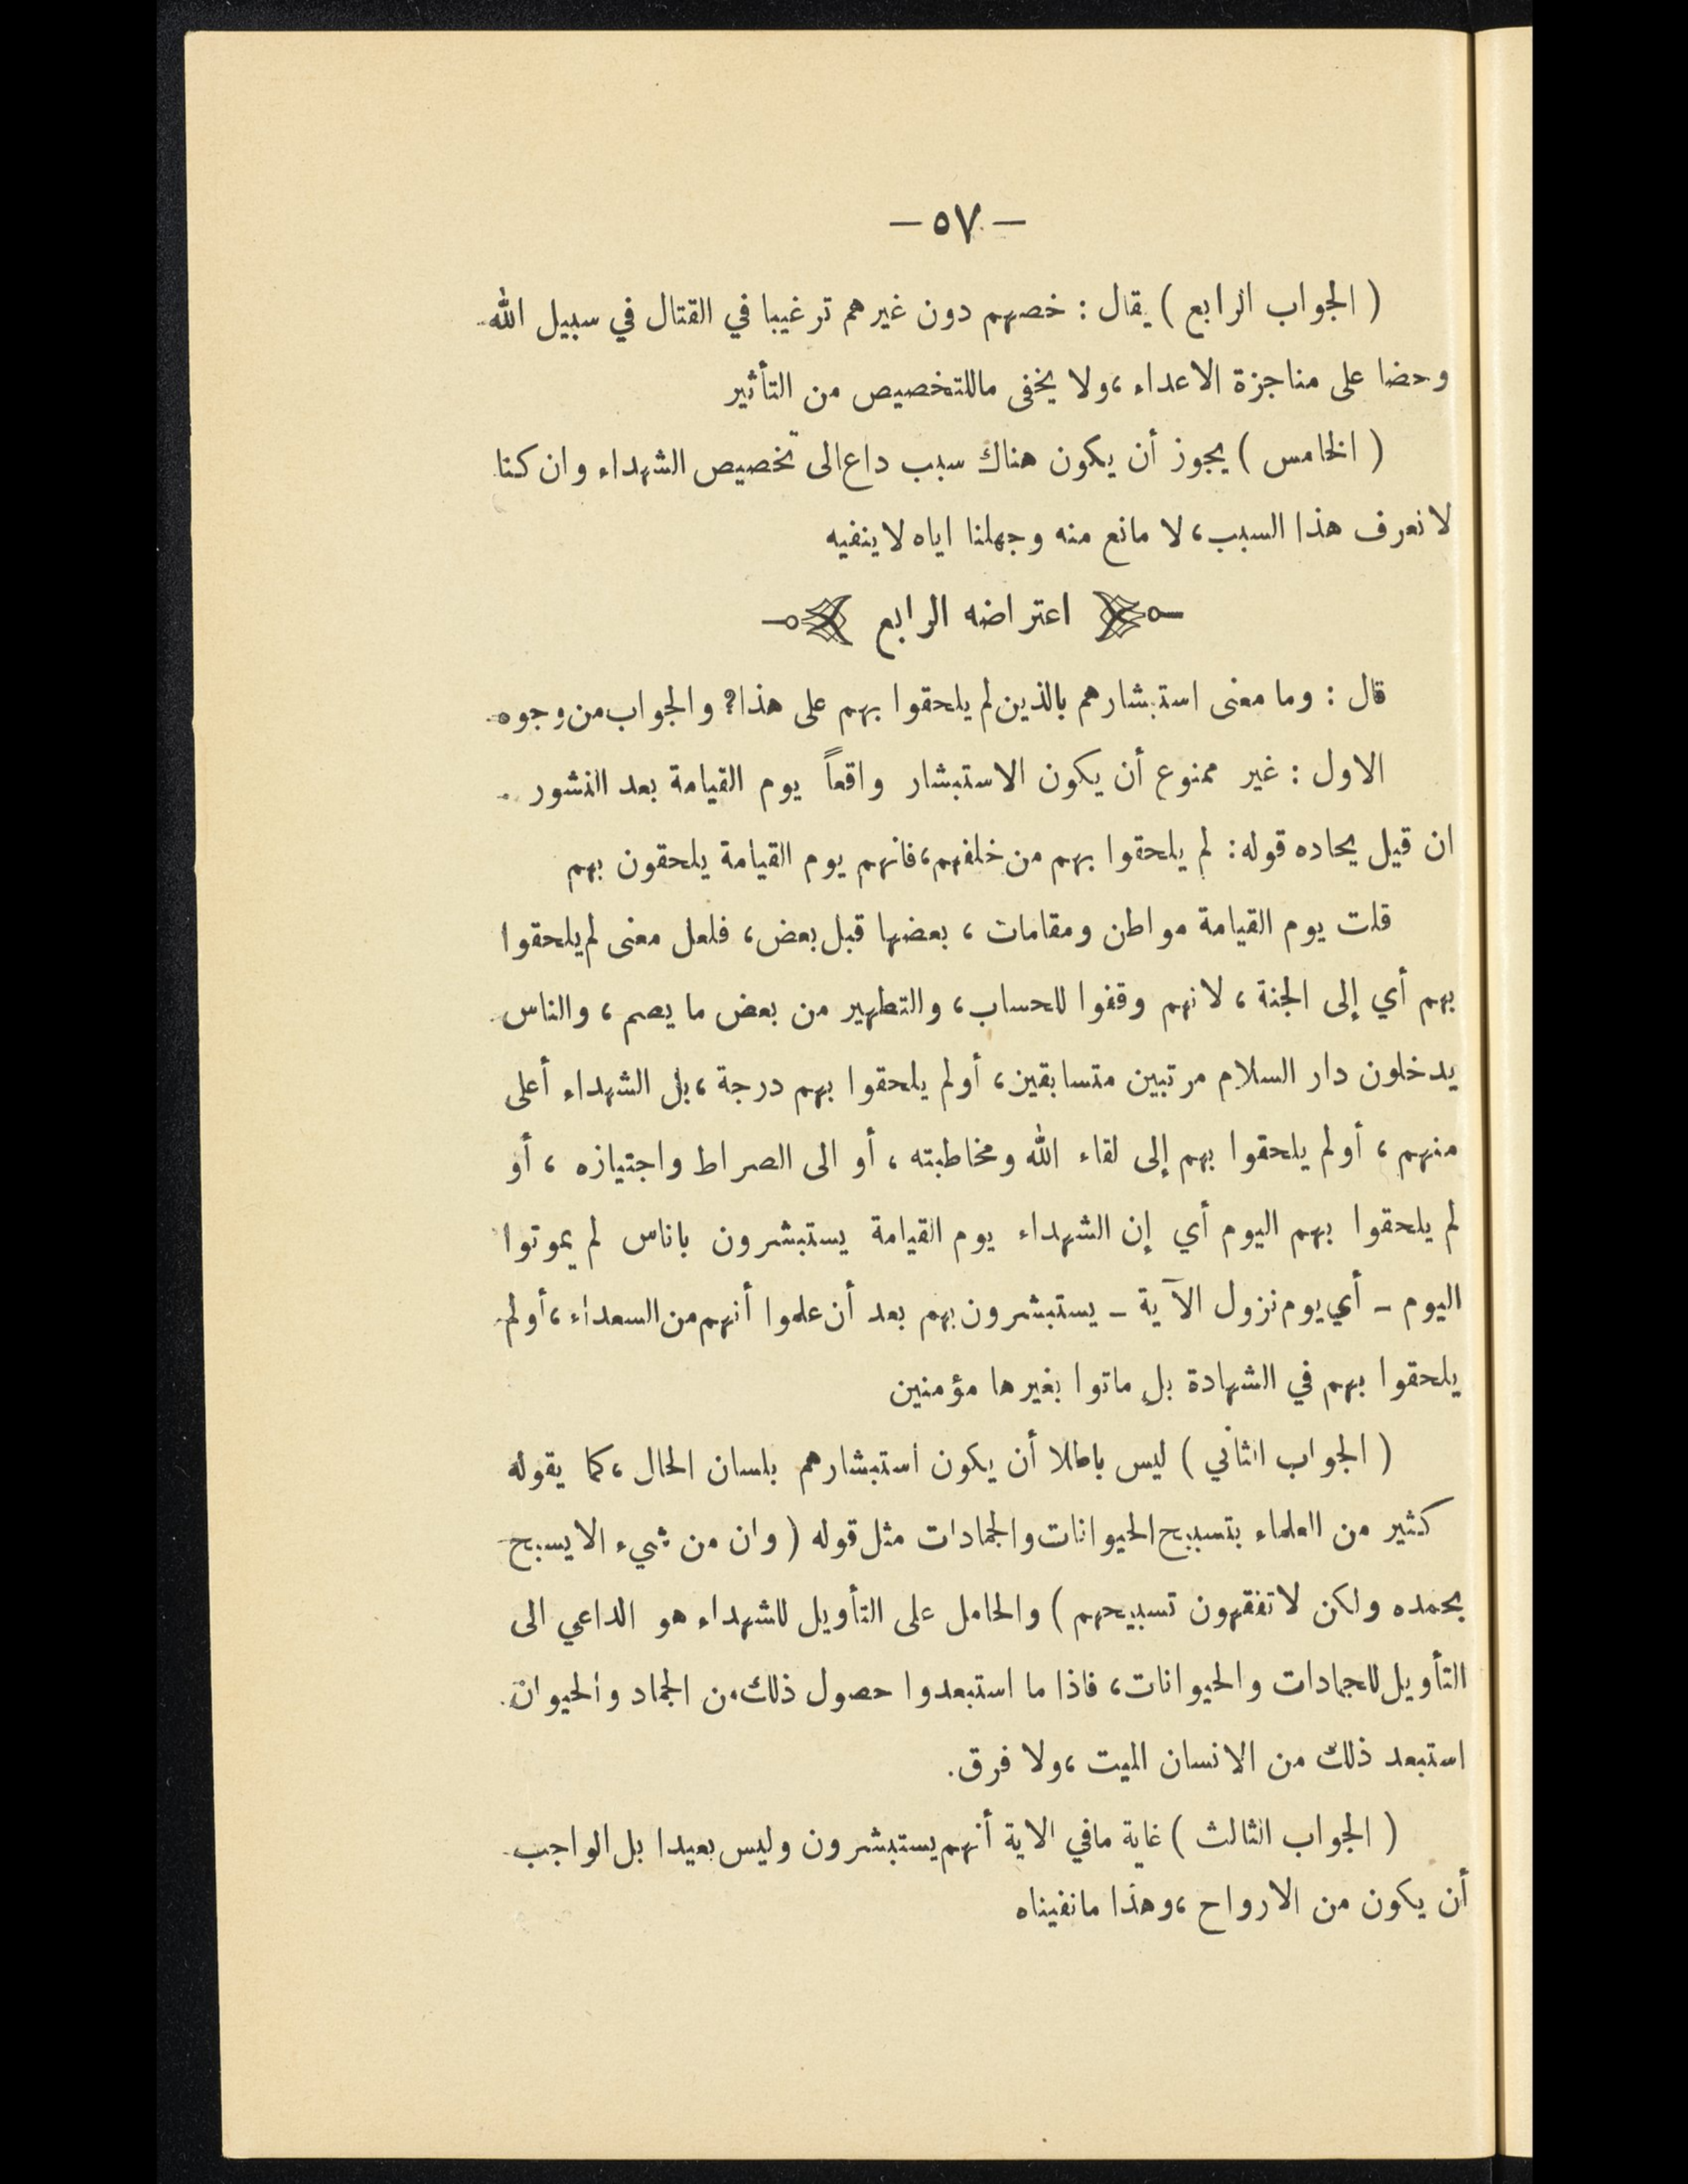 — ٥٧ —
( الجواب الرابع ) يقال : خصهم دون غيرهم ترغيبا في القتال في سبيل الله
وحضا على مناجزة الاعداء ، ولا يخفى ماللتخصيص من التأثير
( الخامس ) يجوز أن يكون هناك سبب داع الى تخصيص الشهداء وان كنا
لا نعرف هذا السبب ، لا مانع منه وجهلنا اياه لا ينفيه
اعتراضه الرابع
قال : وما معنى استبشارهم بالذين لم يلحقوا بهم على هذا ؟ والجواب من وجوه
الاول : غير ممنوع أن يكون الاستبشار واقعاً يوم القيامة بعد النشور .
ان قيل يحاده قوله : لم يلحقوا بهم من خلفهم ، فانهم يوم القيامة يلحقون بهم
قلت يوم القيامة مواطن ومقامات ، بعضها قبل بعض ، فلعل معنى لم يلحقوا
بهم أي إلى الجنة ، لانهم وقفوا للحساب ، والتطهير من بعض ما يصم ، والناس
يدخلون دار السلام مرتبين متسابقين ، أولم يلحقوا بهم درجة ، بل الشهداء أعلى
منهم ، أولم يلحقوا بهم إلى لقاء الله ومخاطبته ، أو الى الصراط واجتيازه ، أو
لم يلحقوا بهم اليوم أي إن الشهداء يوم القيامة يستبشرون باناس لم يموتوا
اليوم ـ أي يوم نزول الآية ـ يستبشرون بهم بعد أن علموا أنهم من السعداء ، أولم
يلحقوا بهم في الشهادة بل ماتوا بغيرها مؤمنين
( الجواب الثاني ) ليس باطلا أن يكون استبشارهم بلسان الحال ، كما يقوله
كثير من العلماء بتسبيح الحيوانات والجمادات مثل قوله ( وان من شيء الا يسبح
بحمده ولكن لا تفقهون تسبيحهم ) والحامل على التأويل للشهداء هو الداعي الى
التأويل للجمادات والحيوانات ، فاذا ما استبعدوا حصول ذلك من الجماد والحيوان
استبعد ذلك من الانسان الميت ، ولا فرق .
( الجواب الثالث ) غاية مافي الاية أنهم يستبشرون وليس بعيدا بل الواجب
أن يكون من الارواح ، وهذا مانفيناه